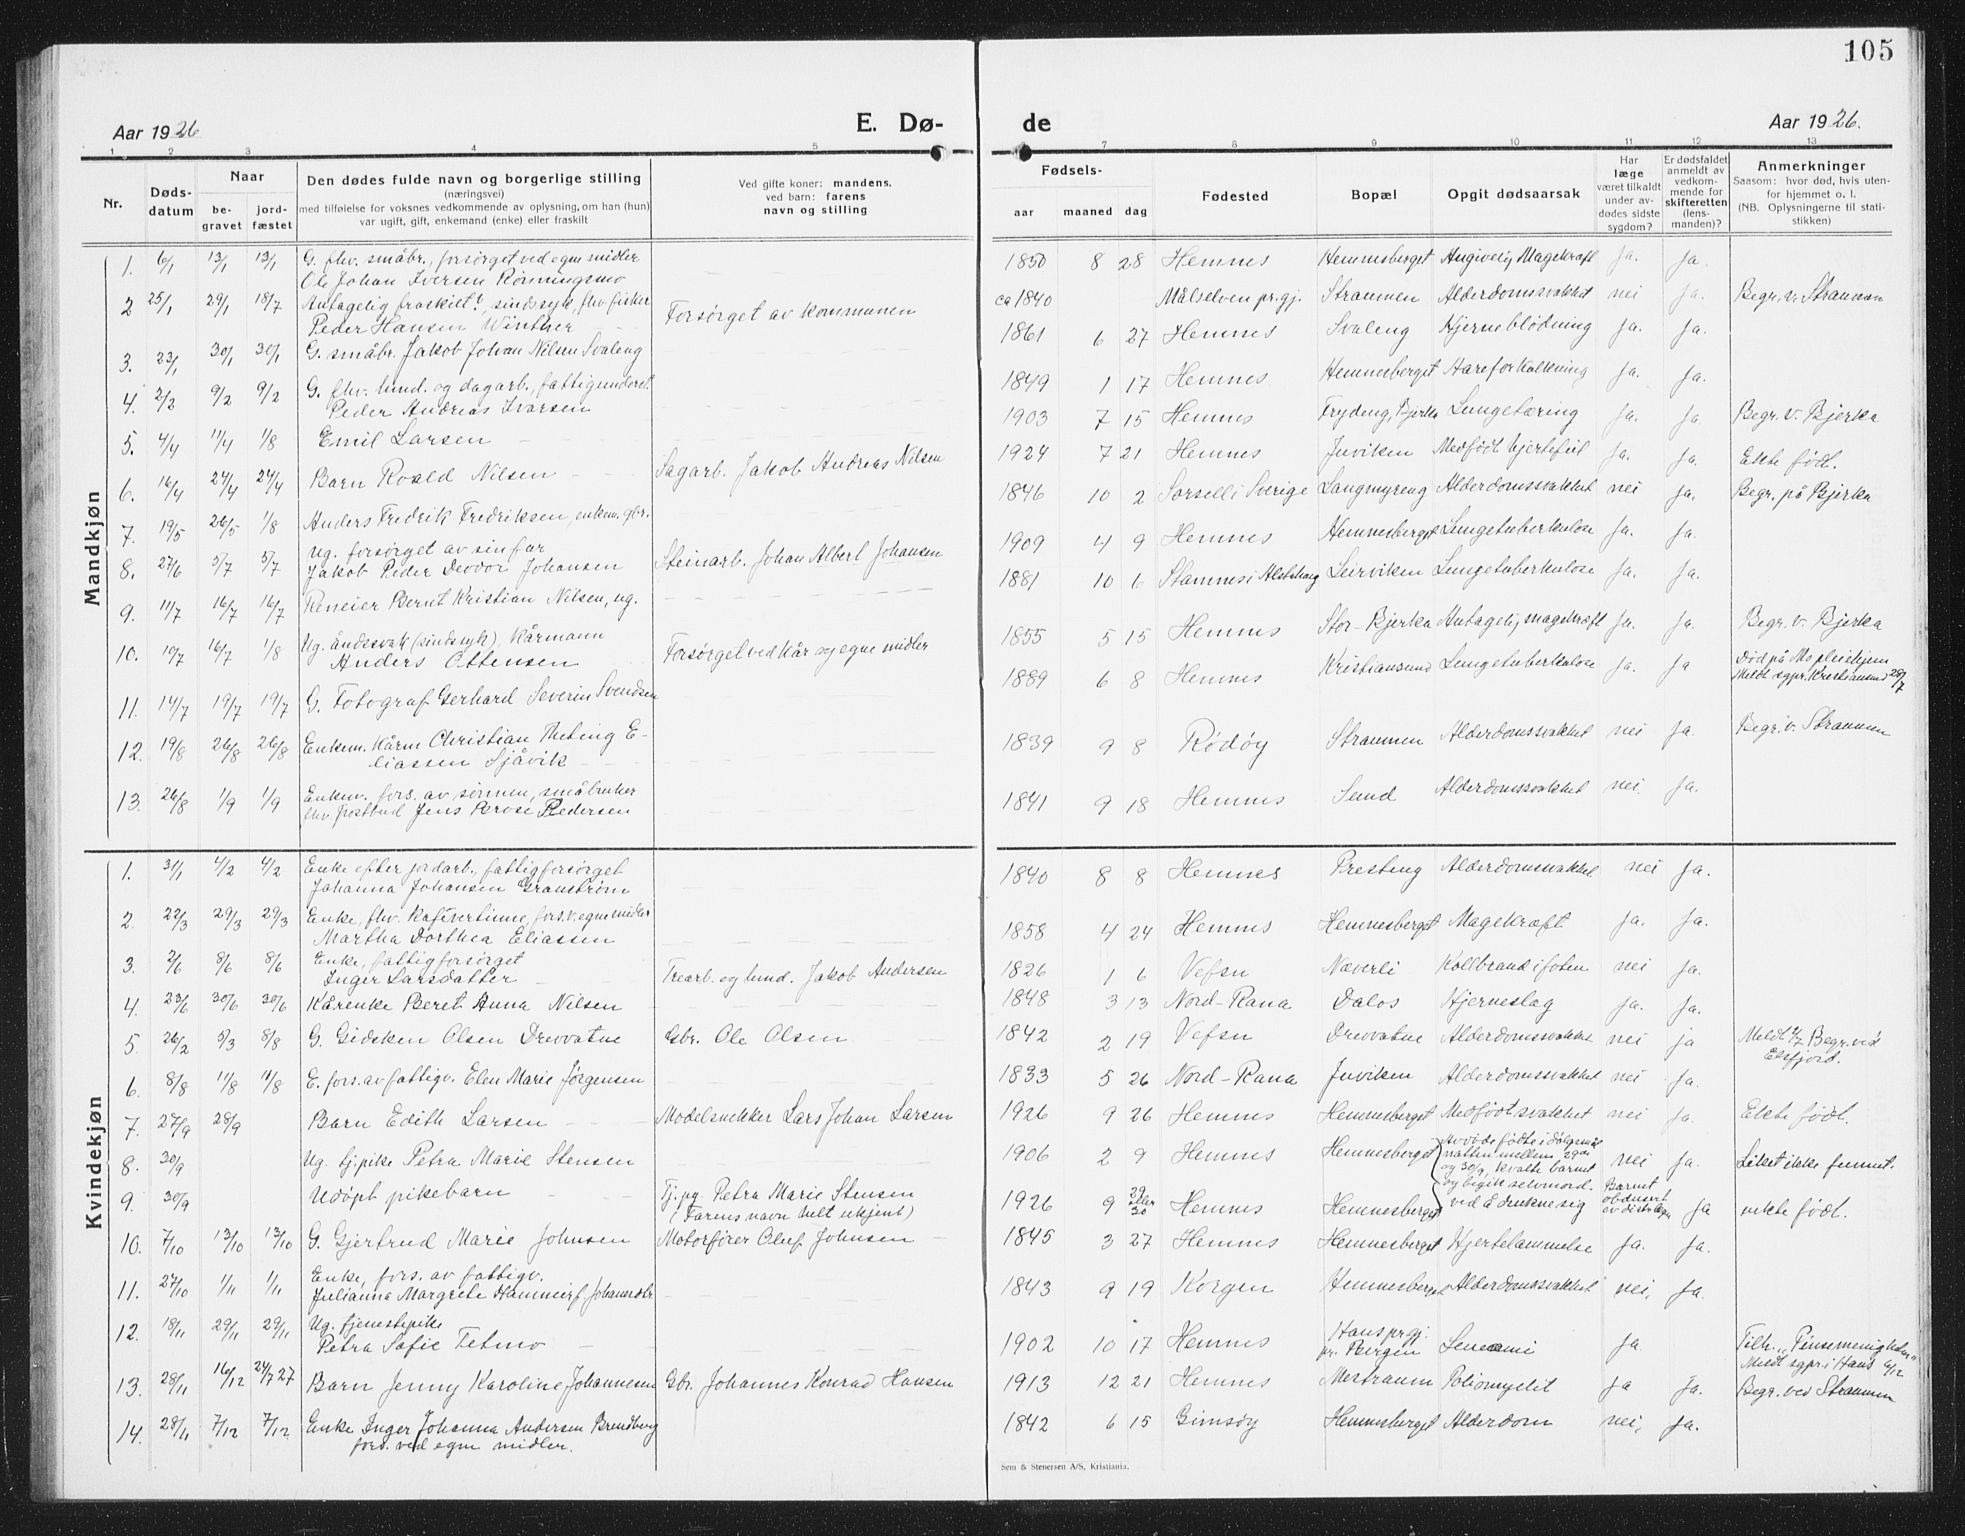 105
Aar 1926
E. Dø-
de
Aar 1926.
1 2 3 4 5 7 8 9 10 11 12 13
Nr.
Døds-
datum
Naar
be-
gravet
jord-
fæstet
Den dødes fulde navn og borgerlige stilling
(næringsvei)
med tilføielse for voksnes vedkommende av oplysning, om han (hun)
var ugift, gift, enkemand (enke) eller fraskilt
Ved gifte koner: mandens.
ved barn: farens
navn og stilling
Fødsels-
aar maaned dag
Fødested
Bopæl
Opgit dødsaarsak
Har
læge
været tilkaldt
under av-
dødes sidste
sygdom?
Er dødsfaldet
anmeldt av
vedkom-
mende for
skifteretten
(lens-
manden)?
Anmerkninger
Saasom: hvor død, hvis uten-
for hjemmet o. l.
(NB. Oplysningerne til stati-
stikken)
Mandkjøn
1. 6/1 13/1 13/1 G. fhv. småbr., forsørget ved egne midler
Ole Johan Iversen Rønningsmo
1850 8 28 Hemnes Hemnesberget Angivelig Magekræft Ja. Ja.
2 25/1 29/1 18/7 Antagelig fraskilt?, sindssyk, fhv. fisker
Peder Hansen Winther Forsørget av kommunen
ca 1840 Målselven pr.gj. Straumen Alderdomssvakhet nei Ja. Begr. v. Straumen
3. 23/1 30/1 30/1 G. småbr. Jakob Johan Nilsen Svaleng
1861 6 27 Hemnes Svaleng Hjerneblødning Ja. Ja.
4. 2/2 9/2 9/2 G. fhv. hund. og dagarb., fattigunderst.
Peder Andreas Ivarsen
1849 1 17 Hemnes Hemnesberget Aareforkalkning Ja. Ja.
5. 4/4 11/4 1/8 Emil Larsen
1903 7 15 Hemnes Frydeng, Bjerka Lungetæring Ja. Ja. Begr. v. Bjerka
6. 16/4 24/4 24/4 Barn Roald Nilsen Sagarb. Jakob Andreas Nilsen
1924 7 21 Hemnes Juviken Medfødt hjertefeil Ja. Ja. Ekte født.
7. 19/5 26/5 1/8 Anders Fredrik Fredriksen, enkem. gbr.
1846 10 2 Sorsell i Sverige Langmyreng Alderdomssvakhet nei Ja. Begr. på Bjerka
8. 27/6 5/7 5/7 Ug. forsørget av sin far
Jakob Peder Deovor Johansen Steinarb. Johan Albert Johansen
1909 4 9 Hemnes Hemnesberget Lungetuberkulose Ja. Ja.
9. 11/7 16/7 16/7 Reneier Bernt Kristian Nilsen, ug.
1881 10 6 Stamnes i Alstahaug Leirviken Lungetuberkulose Ja. Ja.
10. 10/7 16/7 1/8 Ug. åndssvak (sindssyk), Kårmann
Anders Ottensen Forsørget ved kår og egne midler
1855 5 15 Hemnes Stor-Bjerka Antagelig magekræft Ja. Ja. Begr. v. Bjerka
11. 14/7 19/7 19/7 G. Fotograf Gerhard Severin Svendsen
1889 6 8 Hemnes Kristiansund Lungetuberkulose Ja. Ja Død på Mo pleiehjem
Meldt sgpr. Kristiansund 28/7
12. 19/8 26/8 26/8 Enkem. kårm. Christian Theting E-
liassen Sjåvik
1839 9 8 Rødøy Straumen Alderdomssvakhet nei Ja. Begr. v. Straumen
13. 26/8 1/9 1/9 Enkem. fors. av sønnen, småbruker
fhv. postbud Jens Perose Pedersen
1841 9 18 Hemnes Sund Alderdomssvakhet nei Ja.
Kvindekjøn
1. 31/1 4/2 4/2 Enke efter jordarb., fattigforsørget
Johanna Johansen Granstrøm
1840 8 8 Hemnes Presteng Alderdomssvakhet nei Ja.
2. 22/3 29/3 29/3 Enke, fhv. Kafévertinne, fors. v. egne midler
Martha Dorthea Eliassen
1858 4 24 Hemnes Hemnesberget Magekræft Ja. Ja.
3. 2/6 8/6 8/6 Enke, fattigforsørget
Inger Larsdatter Trearb. og hund. Jakob Andersen
1826 1 6 Vefsn Næverli Kollbrand i foten nei Ja.
4. 23/6 30/6 30/6 Kårenke Beret Anna Nilsen
1848 3 13 Nord-Rana Dalos Hjerneslag Ja. Ja.
5. 26/2 5/3 8/8 G. Gidsken Olsen Drevvatne Gbr. Ole Olsen
1842 2 19 Vefsn Drevvatne Alderdomssvakhet nei ja Meldt 4/7 Begr. ved
Elsfjord.
6. 8/8 11/8 11/8 E. fors. av fattigv. Elen Marie Jørgensen
1833 5 26 Nord-Rana Juviken Alderdomssvakhet nei Ja.
7. 27/9 28/9 Barn Edith Larsen Modelsnekker Lars Johan Larsen
1926 9 26 Hemnes Hemnesberget Medfødt svakhet nei Ja. Ekte født.
8. 30/9 Ug. tj.pike Petra Marie Stensen
1906 2 9 Hemnes Hemnesberget Avvøde fødte i dølgsmål
natten mellem 29de
og 30/9, kvalte barnet
og begik selvmord.
ved å drukne sig nei Ja. Liket ikke funnet.
9. 30/9 Udøpt pikebarn Tj.pg. Petra Marie Stensen
(Farens navn helt ukjent)
1926 9 29 eller 30 Hemnes Hemnesberget Barnet
obducert
av distr.lægen Ja uekte født.
10. 7/10 13/10 13/10 G. Gjertrud Marie Johnsen Motorfører Oluf Johnsen
1845 3 27 Hemnes Hemnesberget Hjertelammelse Ja. Ja.
11. 27/10 1/11 1/11 Enke, fors. av fattigv.
Julianna Margrete Hammer f. Johansdtr.
1843 9 19 Korgen Hemnesberget Alderdomssvakhet nei, Ja.
12. 18/11 29/11 29/11 Ug. tjenestepike
Petra Sofie Tetmo
1902 10 17 Hemnes Haus pr.gj.
pr. Bergen Leucæmi Ja. Tilh. "Pinsemenigheten"
Meldt sgpr. i Haus 6/12
13. 28/11 16/12 24/7 27 Barn Jenny Karoline Johannesen Gbr. Johannes Konrad Hansen
1913 12 21 Hemnes Mestraum Poliomyelit Ja Ja. Begr. ved Straumen
14. 28/11 7/12 7/12 Enke Inger Johanna Andersen Brendberg
fors. ved egne midler.
1842 6 15 Gimsøy Hemnesberget Alderdom nei, Ja.
Sem & Stenersen A/S, Kristiania.